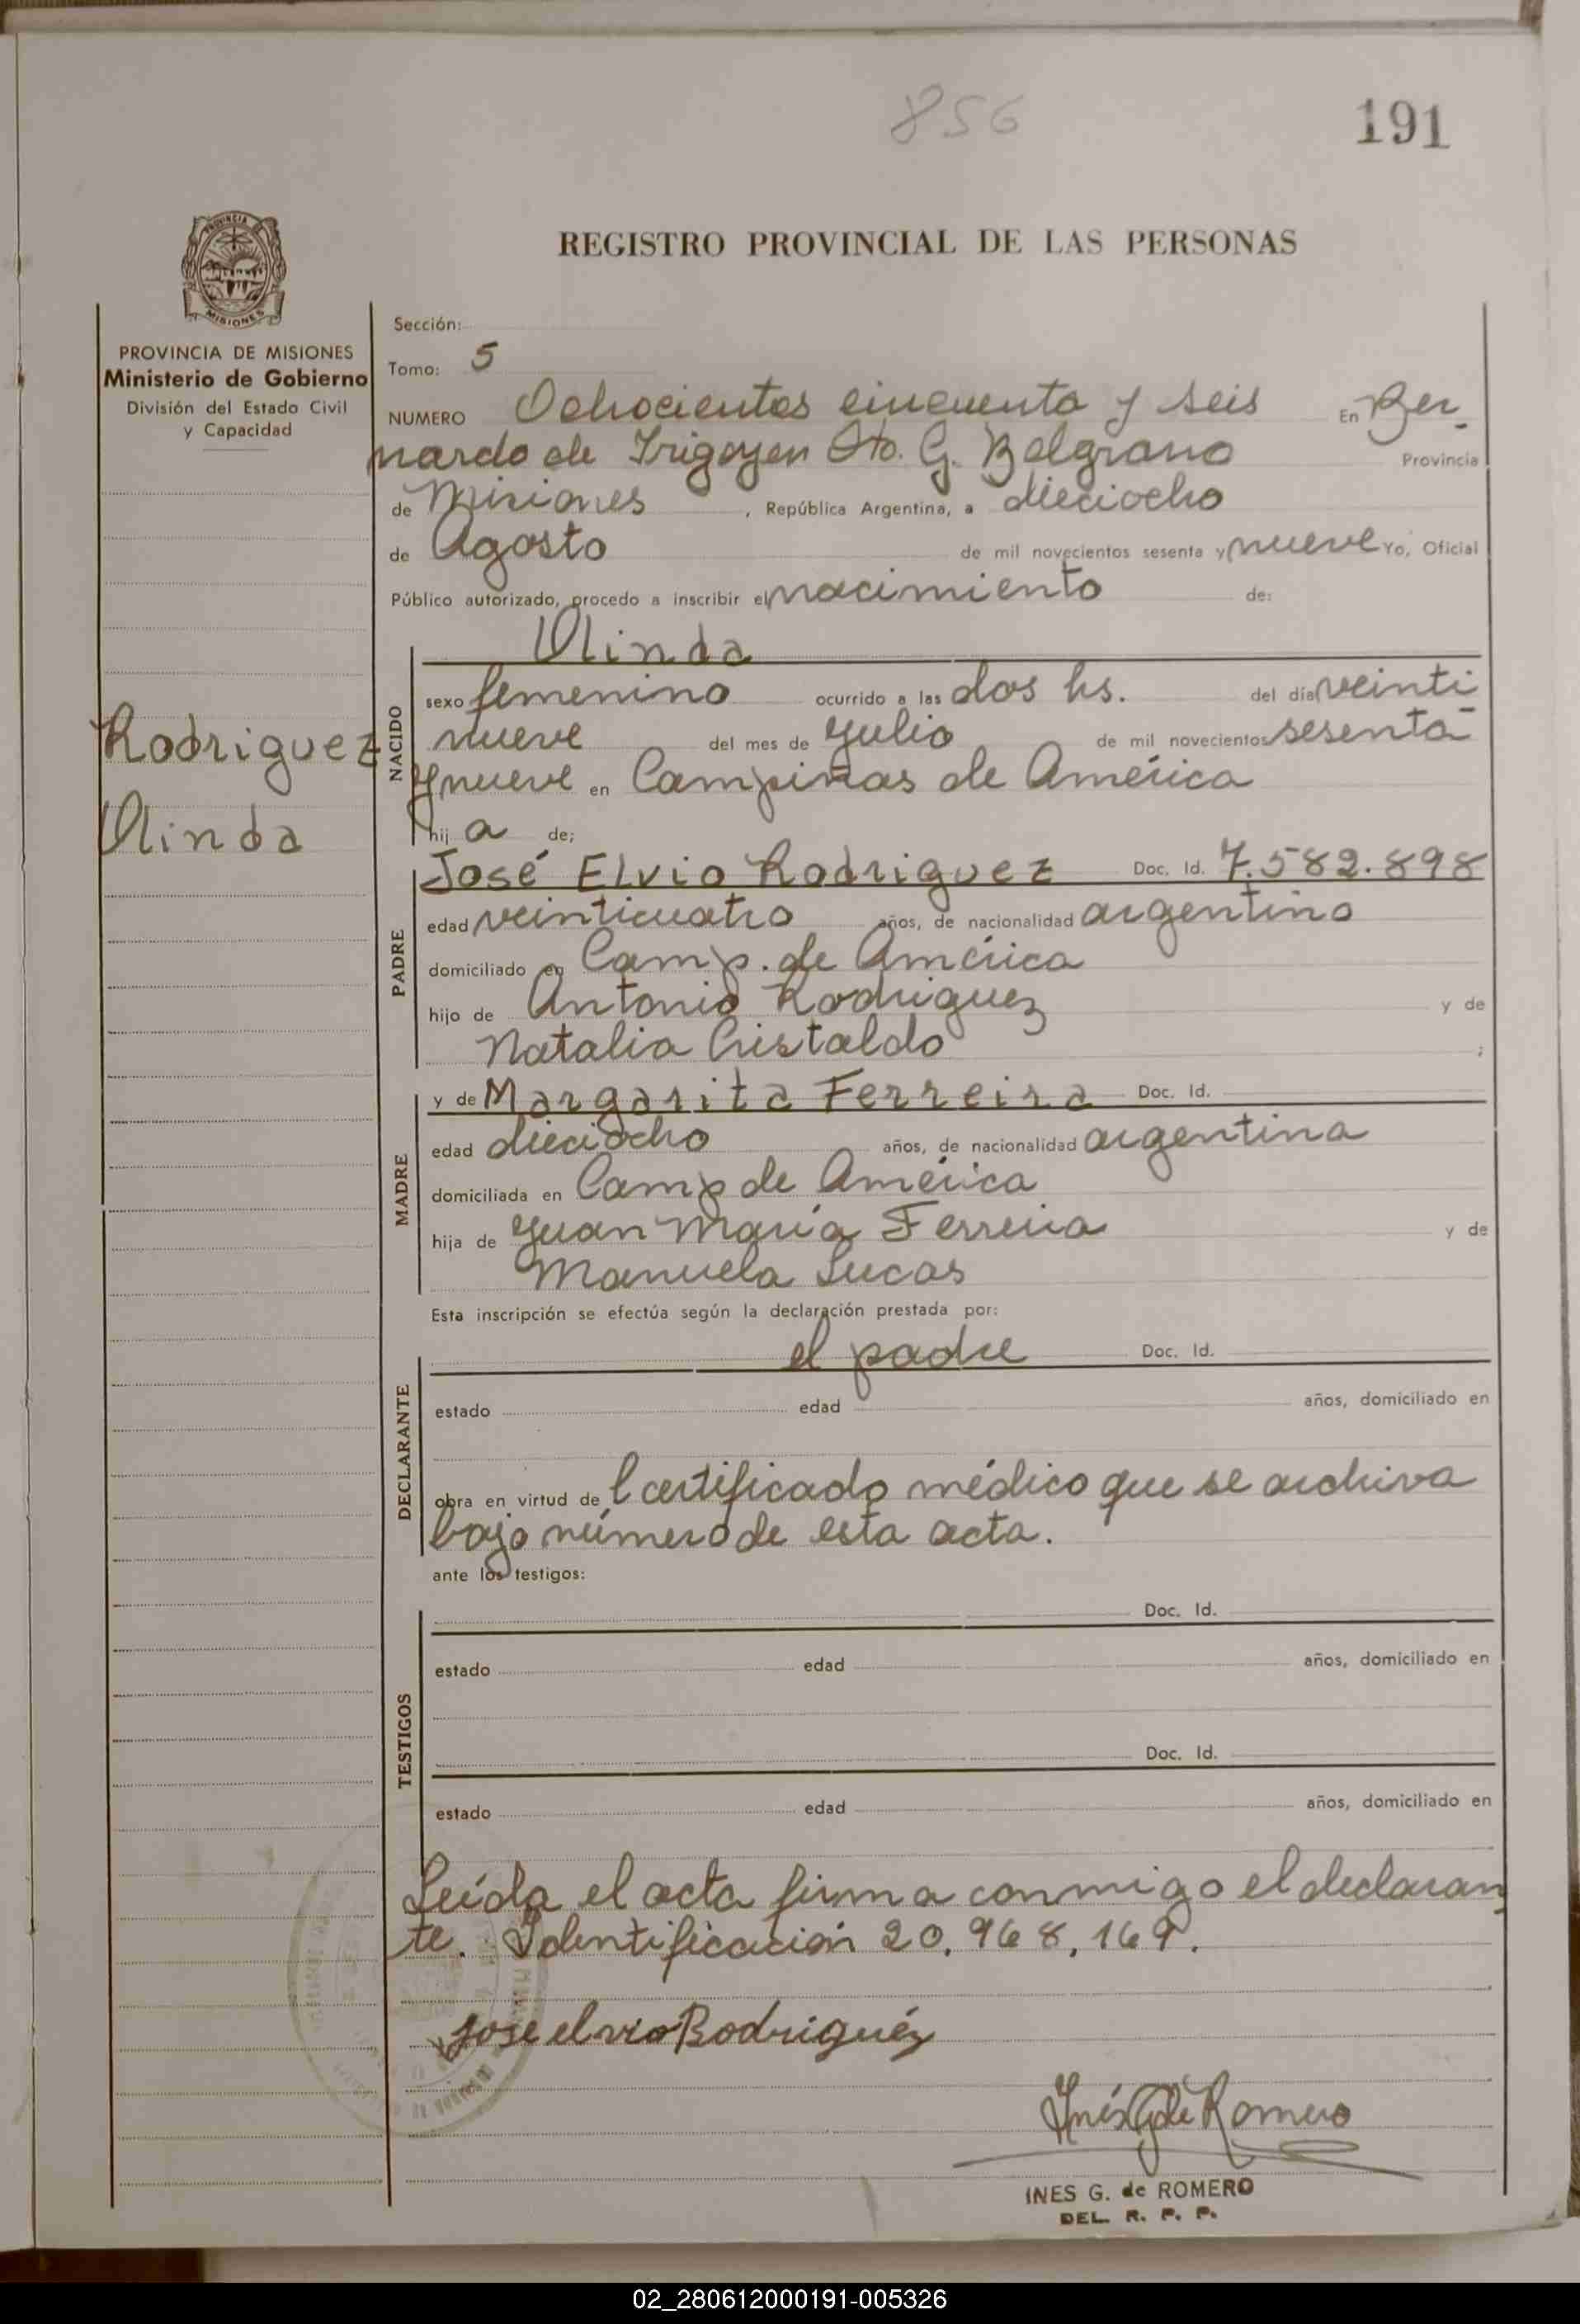 856
191
PROVINCIA
MISIONES
REGISTRO PROVINCIAL DE LAS PERSONAS
PROVINCIA DE MISIONES
Ministerio de Gobierno
División del Estado Civil
y Capacidad
Rodriguez
Olinda
Sección:
Tomo: 5
NUMERO Ochocientos cincuenta y seis En Ber_
nardo de Irigoyen Dto. G. Belgrano Provincia
de Misiones, República Argentina, a dieciocho
de Agosto de mil novecientos sesenta y nueve Yo, Oficial
Público autorizado, procedo a inscribir el nacimiento de:
Olinda
NACIDO
sexo femenino ocurrido a las dos hs. del día veinti
nueve del mes de Julio de mil novecientos sesenta
y nueve en Campinas de América
hij a de;
PADRE
José Elvio Rodriguez Doc. Id. 7.582.898
edad veinticuatro años, de nacionalidad argentino
domiciliado en Camp. de América
hijo de Antonio Rodriguez y de
Natalia Cristaldo ;
MADRE
y de Margarita Ferreira Doc. Id.
edad dieciocho años, de nacionalidad argentina
domiciliada en Camp de América
hija de Juan María Ferreira y de
Manuela Lucas
Esta inscripción se efectúa según la declaración prestada por:
DECLARANTE
el padre Doc. Id.
estado edad años, domiciliado en
obra en virtud de l certificado médico que se archiva
bajo número de esta acta.
ante los testigos:
TESTIGOS
Doc. Id.
estado edad años, domiciliado en
Doc. Id.
estado edad años, domiciliado en
Leída el acta firma conmigo el declaran_
te. Identificación 20.968.169.
Jose elvio Rodriguéz
Inés G de Romero
INES G. de ROMERO
DEL. R. P. P.
02_280612000191-005326